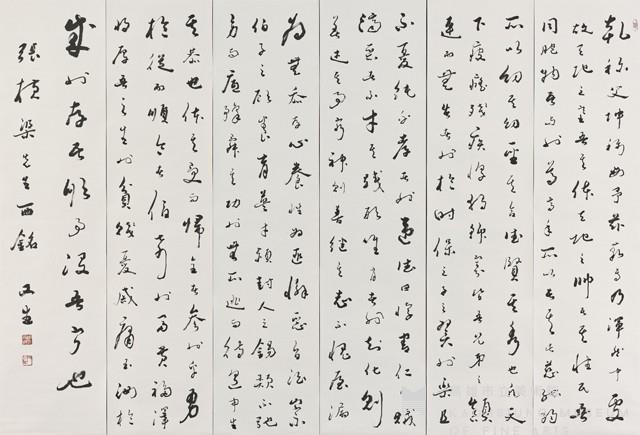 乾稱父坤稱母予茲藐焉乃渾然中處
故天地之塞吾其体天地之帥吾其性民吾
同胞物吾與也尊高年所以長其長慈孤弱
所以幼其幼聖其合德賢其秀也凡天
下疲癃殘疾惸獨鰥寡皆吾兄弟之顛
連而無告者也於時保之子之翼也樂且
不憂純乎孝者也違德曰悖害仁曰賊
濟惡者不才其踐形唯肖者也知化則
善述其事窮神則善繼其志不愧屋漏
為無忝存心養性為匪懈惡旨酒崇
伯子之顧養育英才穎封人之錫類不弛
勞而底豫舜其功也無所逃而待烹申生
其恭也体其受而歸全者參乎勇
於從而順令者伯奇也富貴福澤
將厚吾之生也貧賤憂戚庸玉汝於
成也存吾順事沒吾寧也
張橫渠先生西銘
高雄市立美術館
KAOHSIUNG MUSEUM
OF FINE ARTS